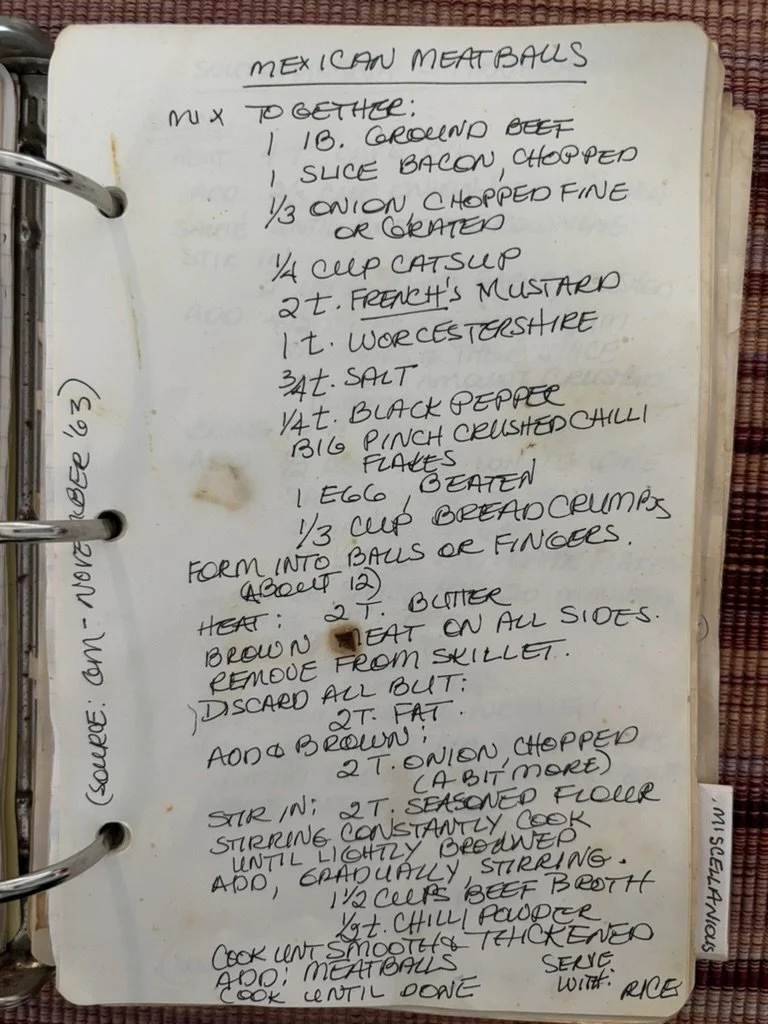 MEXICAN MEATBALLS
MIX TOGETHER:
1 1B. GROUND BEEF
1 SLICE BACON, CHOPPED
1/3 ONION CHOPPED FINE
OR GRATED
1/4 CUP CATSUP
2 t. FRENCH'S MUSTARD
1 t. WORCESTERSHIRE
3/4 t. SALT
1/4 t. BLACK PEPPER
BIG PINCH CRUSHED CHILLI
FLAKES
1 EGG, BEATEN
1/3 CUP BREAD CRUMBS
FORM INTO BALLS OR FINGERS.
(ABOUT 12)
HEAT: 2 T. BUTTER
BROWN MEAT ON ALL SIDES.
REMOVE FROM SKILLET.
DISCARD ALL BUT:
2 T. FAT.
ADD & BROWN:
2 T. ONION, CHOPPED
(A BIT MORE)
STIR IN: 2 T. SEASONED FLOUR
STIRRING CONSTANTLY COOK
UNTIL LIGHTLY BROWNED
ADD, GRADUALLY, STIRRING.
1 1/2 CUPS BEEF BROTH
1/2 t. CHILLI POWDER
COOK UNT SMOOTH & THICKENED
ADD: MEATBALLS
COOK UNTIL DONE
SERVE
WITH: RICE
(SOURCE: OM - NOVEMBER '63)
MISCELLANIOUS